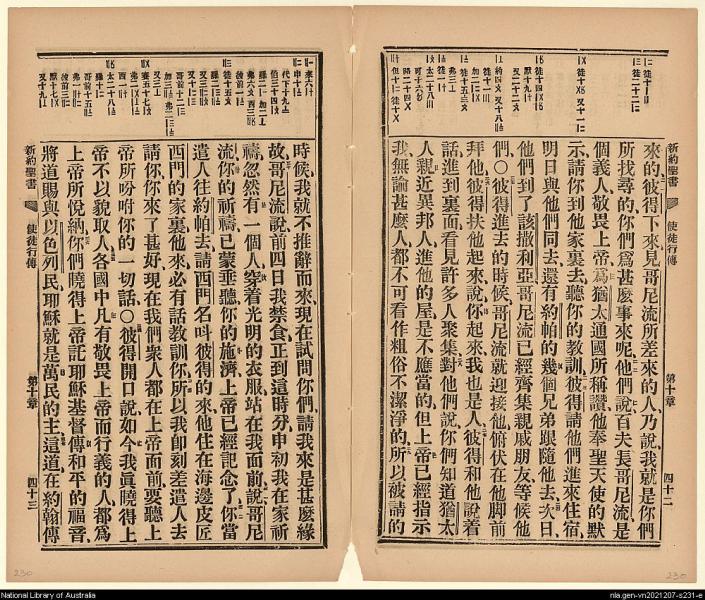 新約聖書
使徒行傳
第十章
四十二
來的彼得下來見哥尼流所差來的人乃說我就是你們
所找尋的你們爲甚麼事來呢他們說百夫長哥尼流是
個義人敬畏上帝爲猶太通國所稱讚他奉聖天使的默
示請你到他家裏去聽你的教訓彼得請他們進來住宿
明日與他們同去還有約帕的幾個兄弟跟隨他去次日
他們到了該撒利亞哥尼流已經齊集親戚朋友等候他
們〇彼得進去的時候哥尼流就迎接他俯伏在他脚前
拜他彼得扶他起來說你起來我也是人彼得和他說着
話進到裏面看見許多人聚集對他們說你們知道猶太
人親近異邦人進他的屋是不應當的但上帝已經指示
我無論甚麼人都不可看作粗俗不潔淨的所以被請的
時候我就不推辭而來現在試問你們請我來是甚麼緣
故哥尼流說前四日我禁食正到這時分申初我在家祈
禱忽然有一個人穿着光明的衣服站在我面前說哥尼
流你的祈禱已蒙垂聽你的施濟上帝已經記念了你當
遣人往約帕去請西門名呌彼得的來他住在海邊皮匠
西門的家裏他來必有話教訓你所以我卽刻差遣人去
請你你來了甚好現在我們衆人都在上帝面前要聽上
帝所吩咐你的一切話〇彼得開口說如今我眞曉得上
帝不以貌取人各國中凡有敬畏上帝而行義的人都爲
上帝所悅納你們曉得上帝託耶穌基督傳和平的福音
將道賜與以色列民耶穌就是萬民的主這道在約翰傳
新約聖書
使徒行傳
第十章
四十三
230
230
National Library of Australia
nla.gen-vn2021207-s231-e